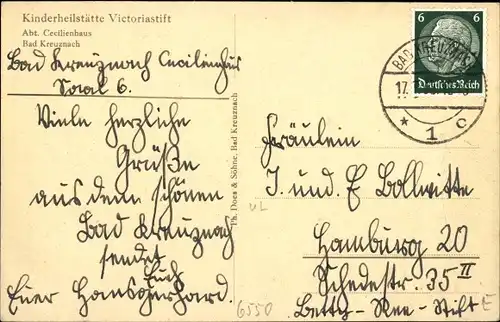 Kinderheilstätte Victoriastift
Abt. Cecilienhaus
Bad Kreuznach
Bad Kreuznach Cecilienhaus
Saal 6.
Viele herzliche
Grüße
aus dem schönen
Bad Kreuznach
sendet
Euch
Euer Hansgerhard.
Ph. Does & Söhne, Bad Kreuznach
6
6
Deutsches Reich
BAD KREUZNACH
17.
* 1 c
Fräulein
I. und E Bollwitte
Hamburg 20
Schedestr. 35 II
Betty-Ree-Stift
6550
E